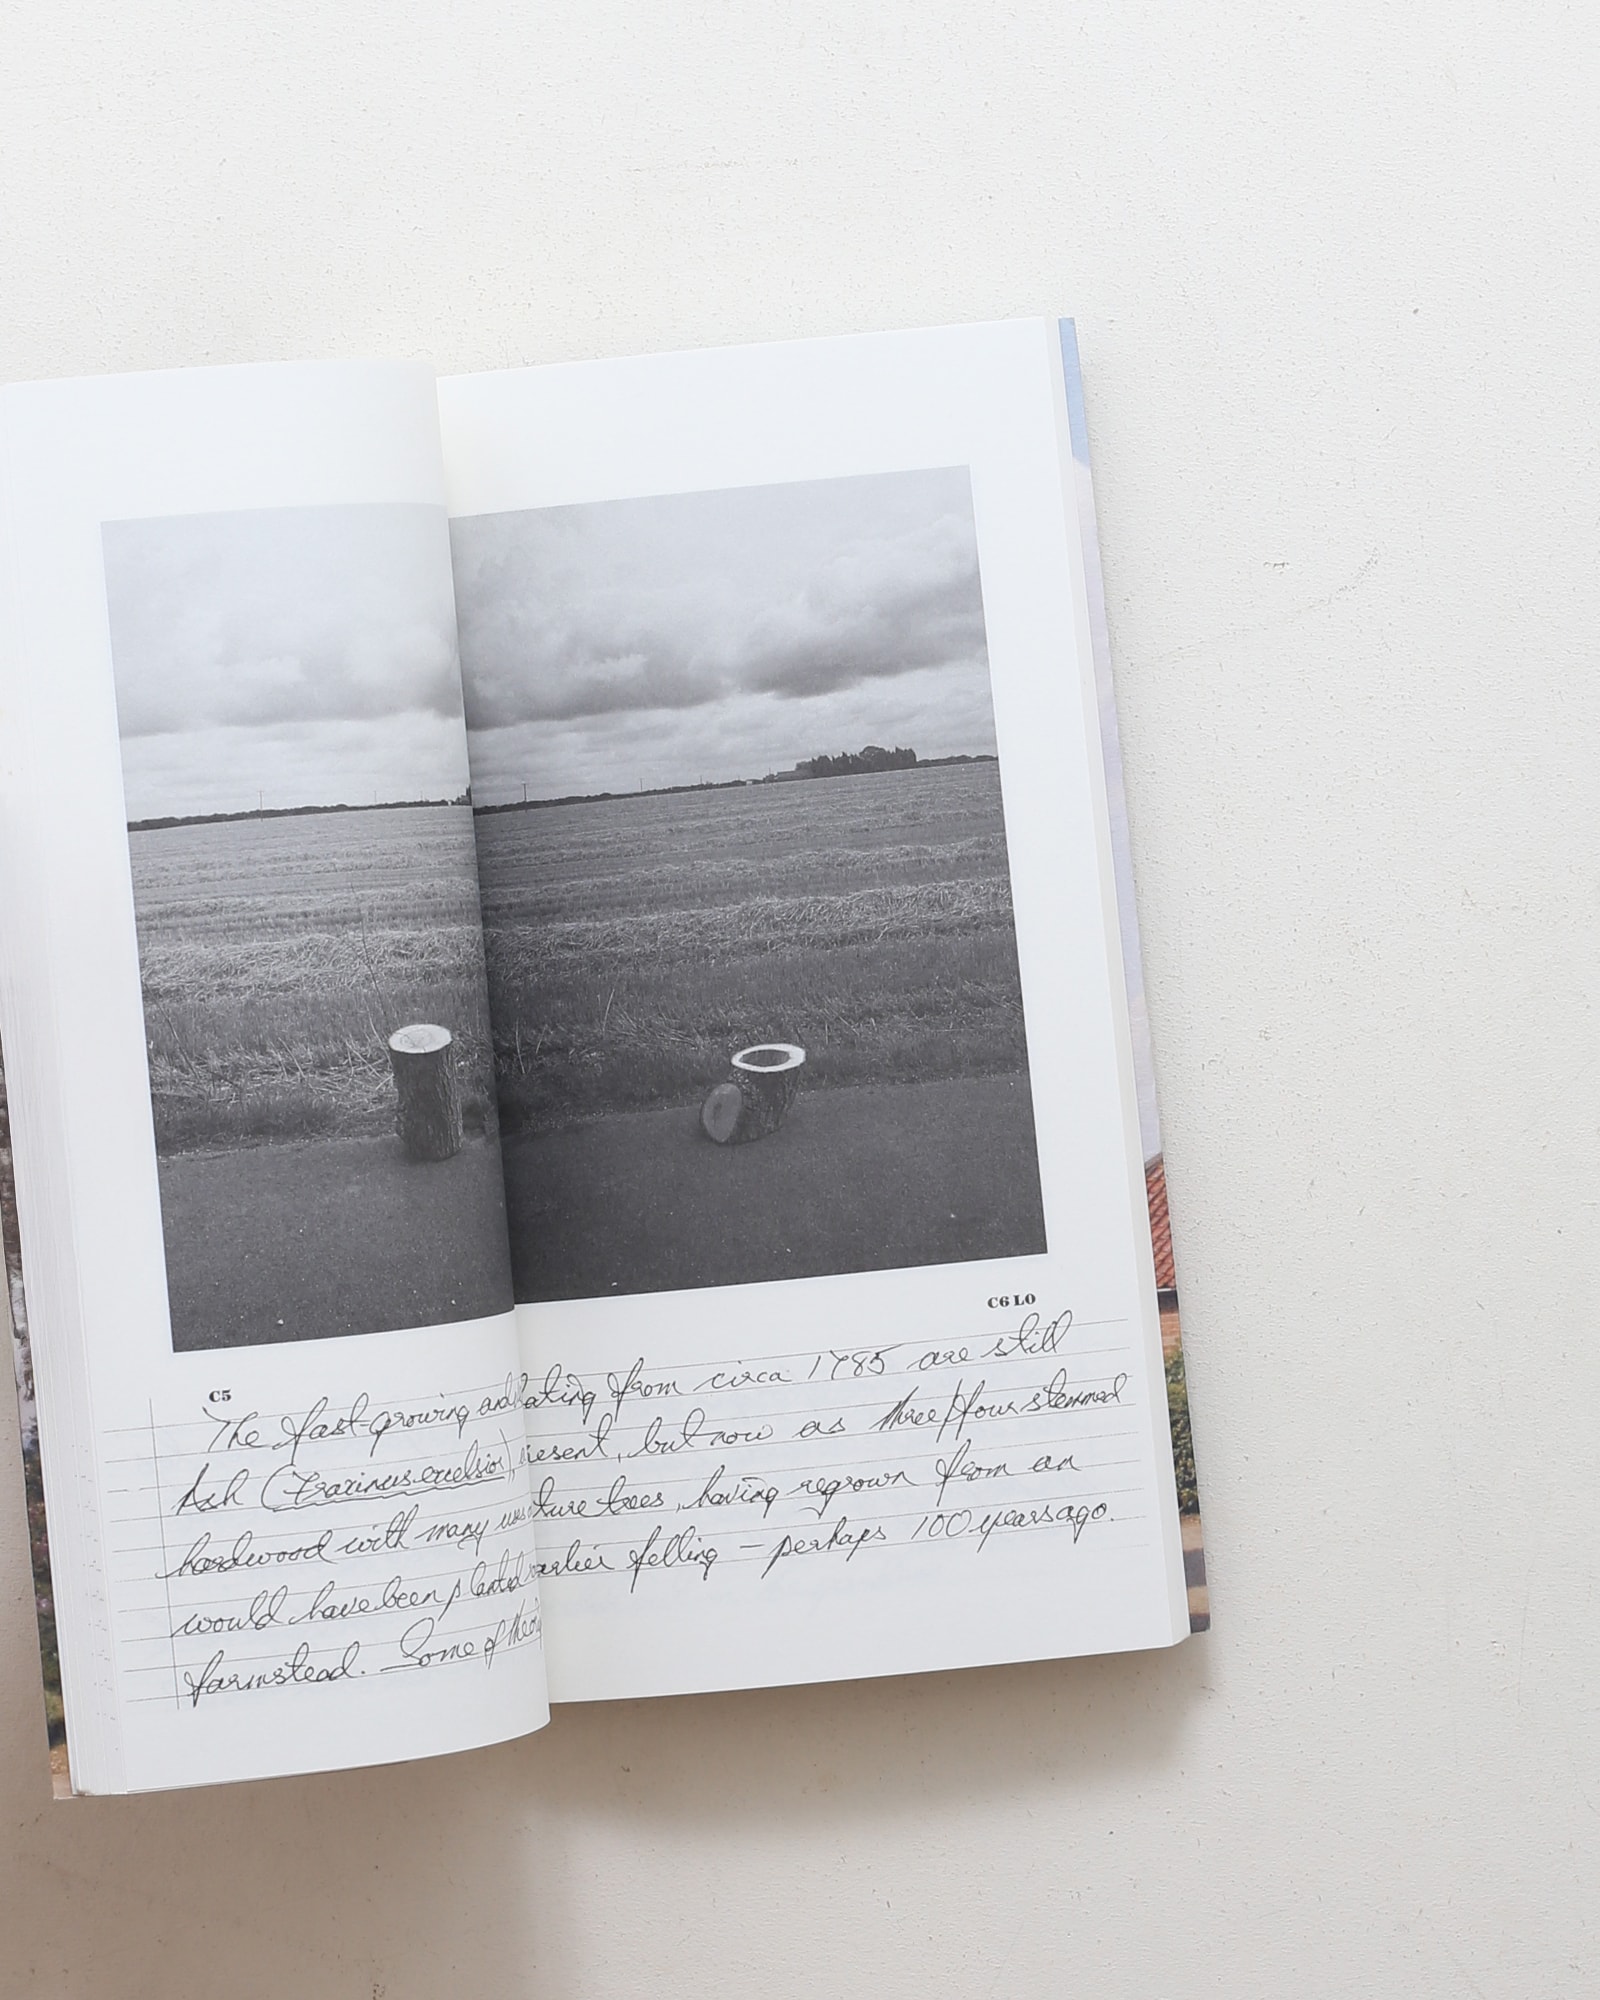 C5
The fast growing and
Ash (Fraxinus excelsior),
hardwood with many uses
would have been planted
farmstead. Some of the
C6 LO
from circa 1785 are still
present, but now as three/four stemmed
trees, having regrown from an
earlier felling – perhaps 100 years ago.